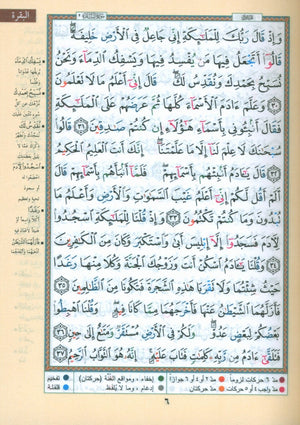 البقرة
وَإِذْ قَالَ رَبُّكَ لِلْمَلَٰٓئِكَةِ إِنِّى جَاعِلٌ فِى ٱلْأَرْضِ خَلِيفَةً
قَالُوٓا۟ أَتَجْعَلُ فِيهَا مَن يُفْسِدُ فِيهَا وَيَسْفِكُ ٱلدِّمَآءَ وَنَحْنُ
نُسَبِّحُ بِحَمْدِكَ وَنُقَدِّسُ لَكَ قَالَ إِنِّىٓ أَعْلَمُ مَا لَا تَعْلَمُونَ
٣٠ وَعَلَّمَ ءَادَمَ ٱلْأَسْمَآءَ كُلَّهَا ثُمَّ عَرَضَهُمْ عَلَى ٱلْمَلَٰٓئِكَةِ
فَقَالَ أَنۢبِـُٔونِى بِأَسْمَآءِ هَٰٓؤُلَآءِ إِن كُنتُمْ صَٰدِقِينَ ٣١ قَالُوا۟
سُبْحَٰنَكَ لَا عِلْمَ لَنَآ إِلَّا مَا عَلَّمْتَنَآ إِنَّكَ أَنتَ ٱلْعَلِيمُ ٱلْحَكِيمُ
٣٢ قَالَ يَٰٓـَٔادَمُ أَنۢبِئْهُم بِأَسْمَآئِهِمْ فَلَمَّآ أَنۢبَأَهُم بِأَسْمَآئِهِمْ قَالَ
أَلَمْ أَقُل لَّكُمْ إِنِّىٓ أَعْلَمُ غَيْبَ ٱلسَّمَٰوَٰتِ وَٱلْأَرْضِ وَأَعْلَمُ مَا
تُبْدُونَ وَمَا كُنتُمْ تَكْتُمُونَ ٣٣ وَإِذْ قُلْنَا لِلْمَلَٰٓئِكَةِ ٱسْجُدُوا۟
لِـَٔادَمَ فَسَجَدُوٓا۟ إِلَّآ إِبْلِيسَ أَبَىٰ وَٱسْتَكْبَرَ وَكَانَ مِنَ ٱلْكَٰفِرِينَ
٣٤ وَقُلْنَا يَٰٓـَٔادَمُ ٱسْكُنْ أَنتَ وَزَوْجُكَ ٱلْجَنَّةَ وَكُلَا مِنْهَا رَغَدًا
حَيْثُ شِئْتُمَا وَلَا تَقْرَبَا هَٰذِهِ ٱلشَّجَرَةَ فَتَكُونَا مِنَ ٱلظَّٰلِمِينَ ٣٥
فَأَزَلَّهُمَا ٱلشَّيْطَٰنُ عَنْهَا فَأَخْرَجَهُمَا مِمَّا كَانَا فِيهِ وَقُلْنَا ٱهْبِطُوا۟
بَعْضُكُمْ لِبَعْضٍ عَدُوٌّ وَلَكُمْ فِى ٱلْأَرْضِ مُسْتَقَرٌّ وَمَتَٰعٌ إِلَىٰ حِينٍ
٣٦ فَتَلَقَّىٰٓ ءَادَمُ مِن رَّبِّهِۦ كَلِمَٰتٍ فَتَابَ عَلَيْهِ إِنَّهُۥ هُوَ ٱلتَّوَّابُ ٱلرَّحِيمُ ٣٧
مدّ ٦ حركات لزوماً مدّ ٢ أو ٤ أو ٦ جوازاً إخفاء، ومواقع الغُنَّة (حركتان) تفخيم
مدّ واجب ٤ أو ٥ حركات مدّ حركتان إدغام، وما لا يُلفظ قلقلة
٦